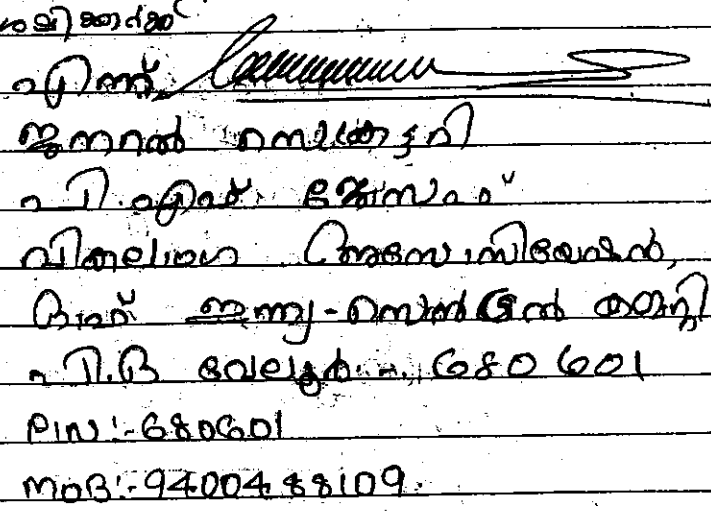 എന്ന്
ജനറൽ സെക്രട്ടറി
പി. എഫ് ജോസഫ്
വികലാംഗ അസോസിയേഷൻ,
ഓഫ് ഇന്ത്യ-സെൻട്രൽ കമ്മറ്റി
പി.ഒ വേലൂർ - 680 601
PIN:-680601
MOB:-9400488109.